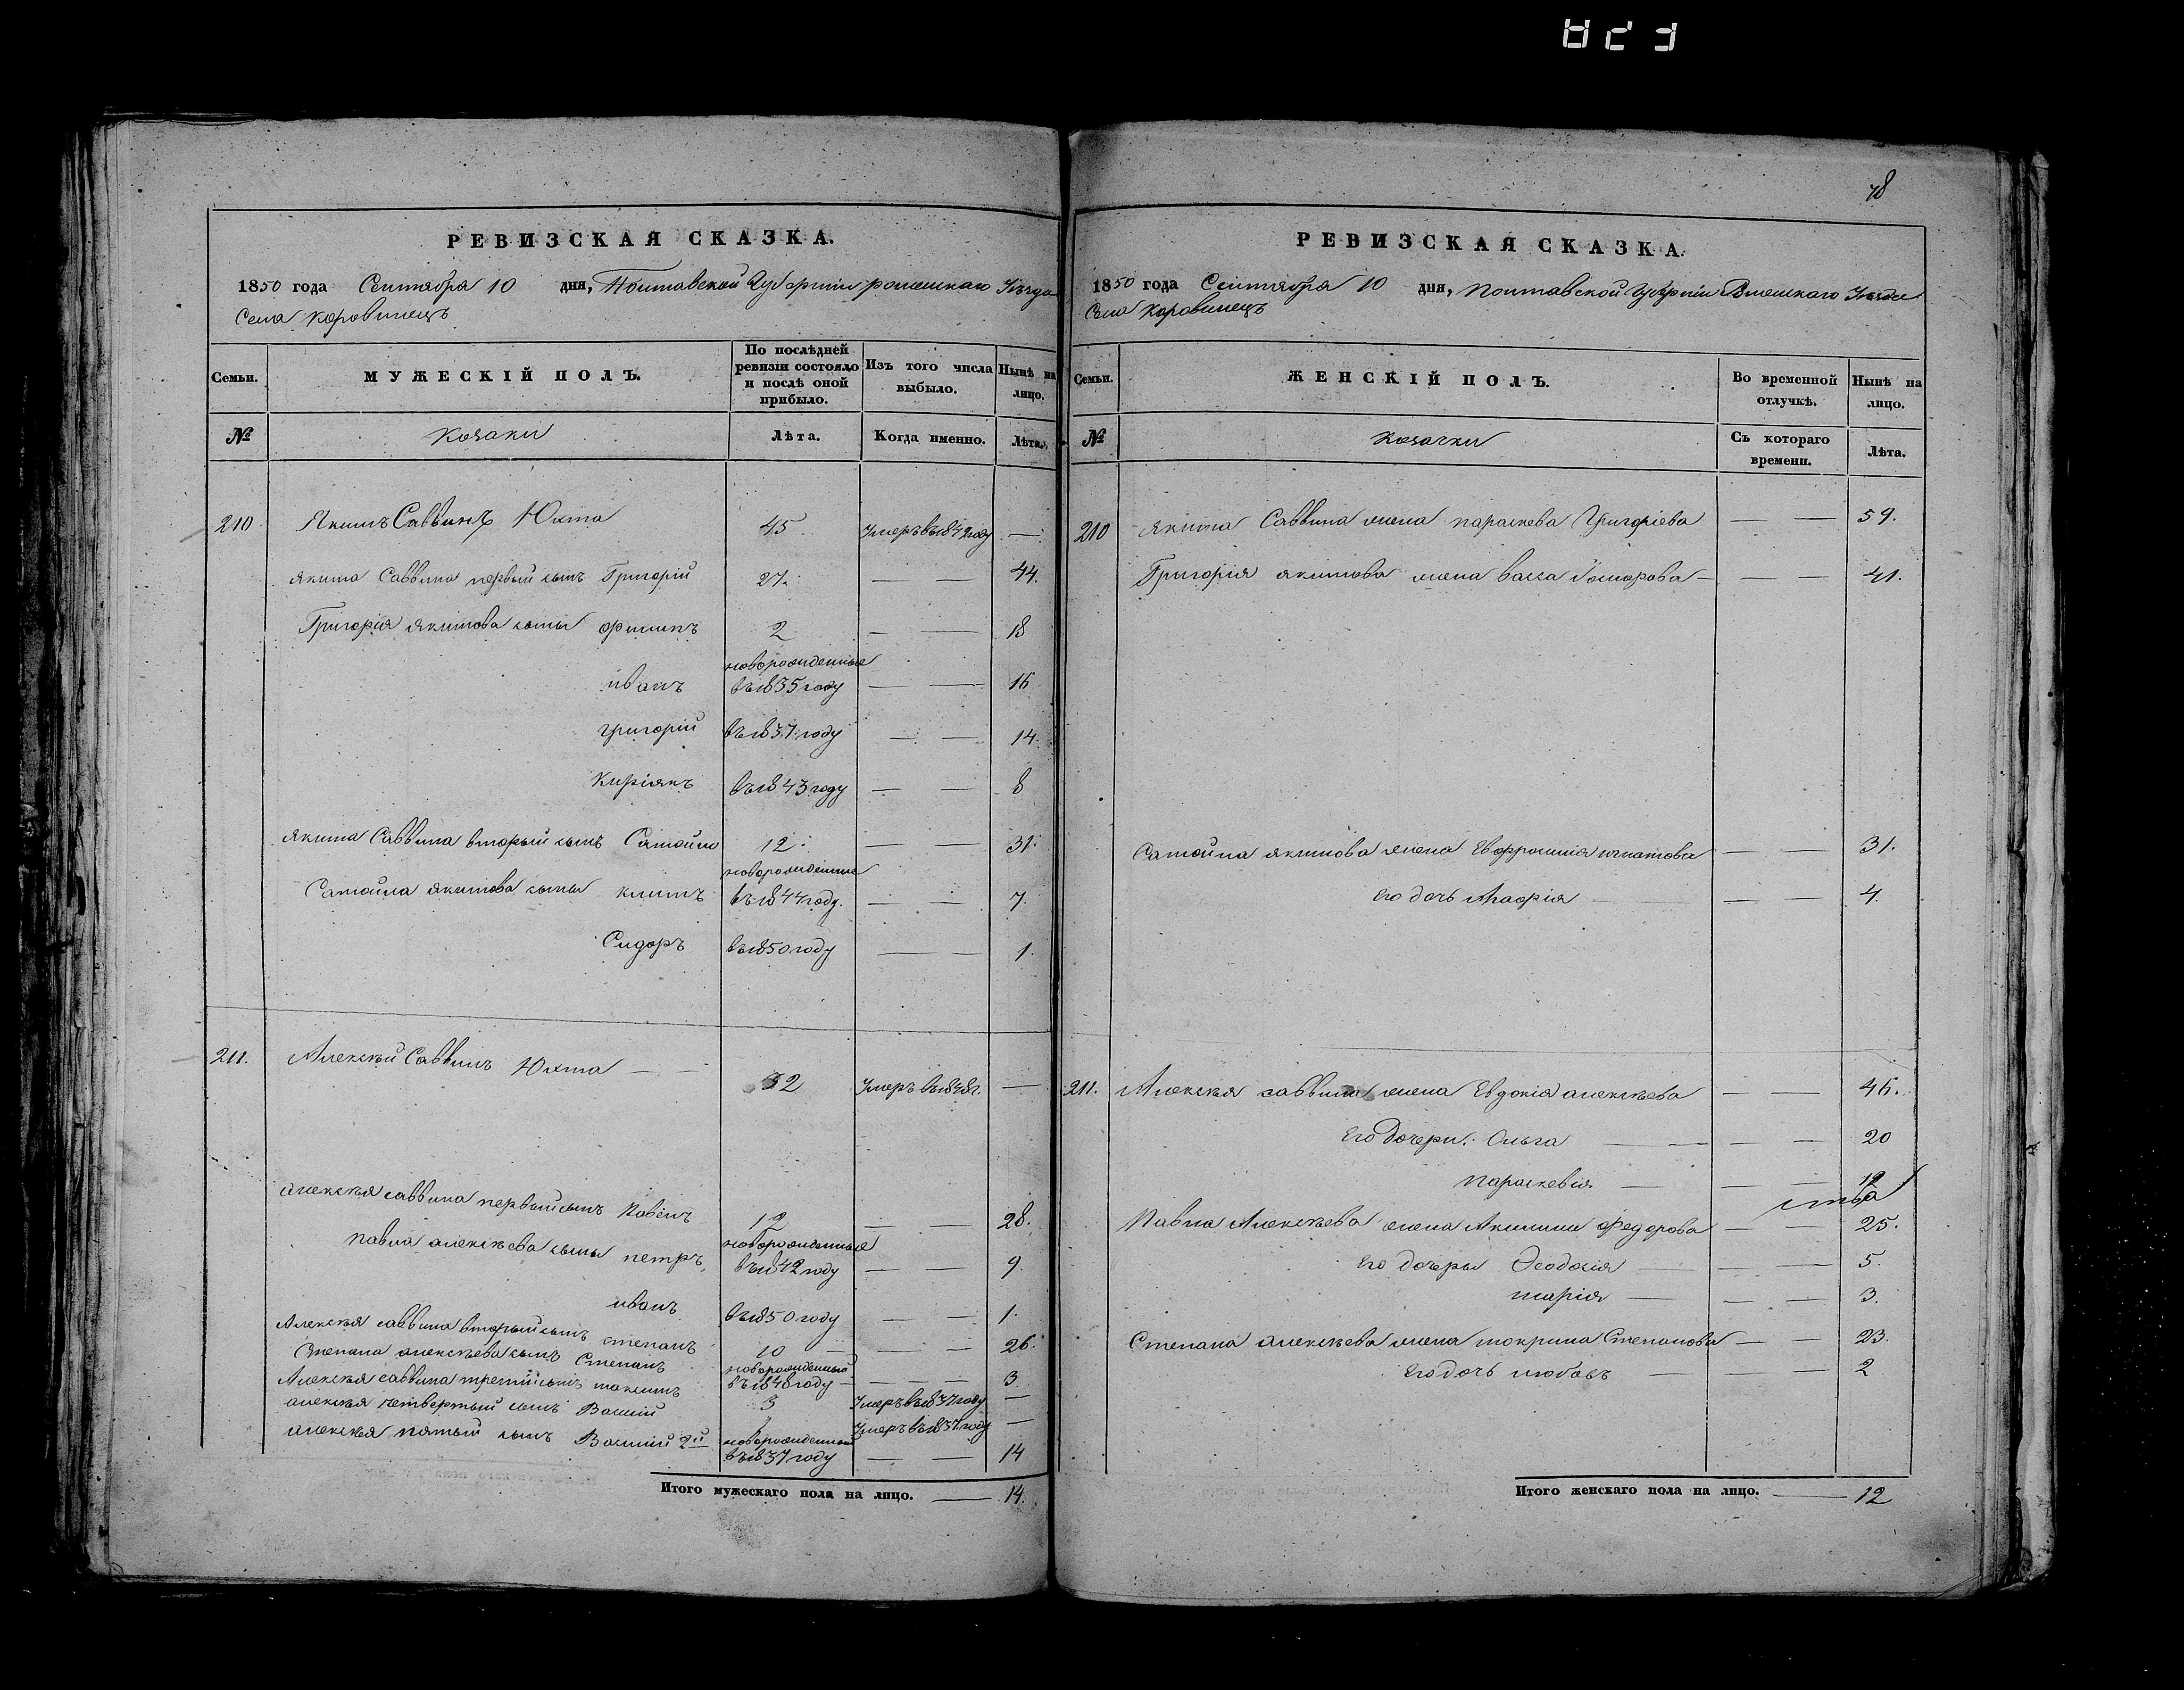 78
РЕВИЗСКАЯ СКАЗКА.
1850 года Сентября 10 дня, Полтавской Губернии роменскаго Уѣзда
Села Коровинецъ
Семьи. МУЖЕСКІЙ ПОЛЪ. По послѣдней ревизіи состояло и послѣ оной прибыло. Изъ того числа выбыло. Нынѣ на лицо.
№ Козаки Лѣта. Когда именно. Лѣта.
210 Якимъ Саввинъ Юхта 45 Умеръ въ 1842 году —
Якима Саввина первый сынъ Григорій 27. — — 44.
Григорія Якимова сыны Филипъ 2 — — 18
новорожденные
иванъ въ 1835 году — — 16
григорій въ 1837 году — — 14.
Киріякъ въ 1843 году — — 8
Якима Саввина вторый сынъ Самойло 12. — — 31.
новорожденные
Самойла Якимова сыны климъ въ 1844 году. — — 7.
Сидоръ въ 1850 году — — 1.
211. Алексѣй Саввинъ Юхта — — 32 Умеръ въ 1848 г. —
алексѣя саввина первый сынъ Павелъ 12 — — 28.
новорожденные
Павла алексѣева сыны петръ въ 1842 году — — 9.
иванъ въ 1850 году — — 1.
Алексѣя саввина вторый сынъ степанъ 10 — — 26.
новорожденный
Степана алексѣева сынъ Степанъ въ 1848 году — — 3.
Алексѣя саввина третій сынъ максимъ 3 Умеръ въ 1837 году —
алексѣя четвертый сынъ Василій Умеръ въ 1837 году —
новорожденный
алексѣя пятый сынъ Василій 2й въ 1837 году — — 14
Итого мужескаго пола на лицо. — 14.
РЕВИЗСКАЯ СКАЗКА.
1850 года Сентября 10 дня, Полтавской Губерніи Роменскаго Уѣзда
Села Коровинецъ
Семьи. ЖЕНСКІЙ ПОЛЪ. Во временной отлучкѣ. Нынѣ на лицо.
№ Козачки Съ котораго времени. Лѣта.
210 Якима Саввина жена параскева Григоріева — — 59.
Григорія якимова жена васса — — — 41.
Самойла якимова жена Евфросинія игнатова — — 31.
Его дочь Агафія — — — 4.
211. Алексѣя саввина жена Евдокія алексѣева — — 46.
Его дочери: Ольга — — — 20
параскевія — — — 12
Павла Алексѣева жена Акилина федорова — — 25.
Его дочеры Ѳеодосія — — — 5.
марія — — — 3.
Степана алексѣева жена мокрина Степанова — — 23.
Его дочь любовь — — — 2
Итого женскаго пола на лицо. — 12